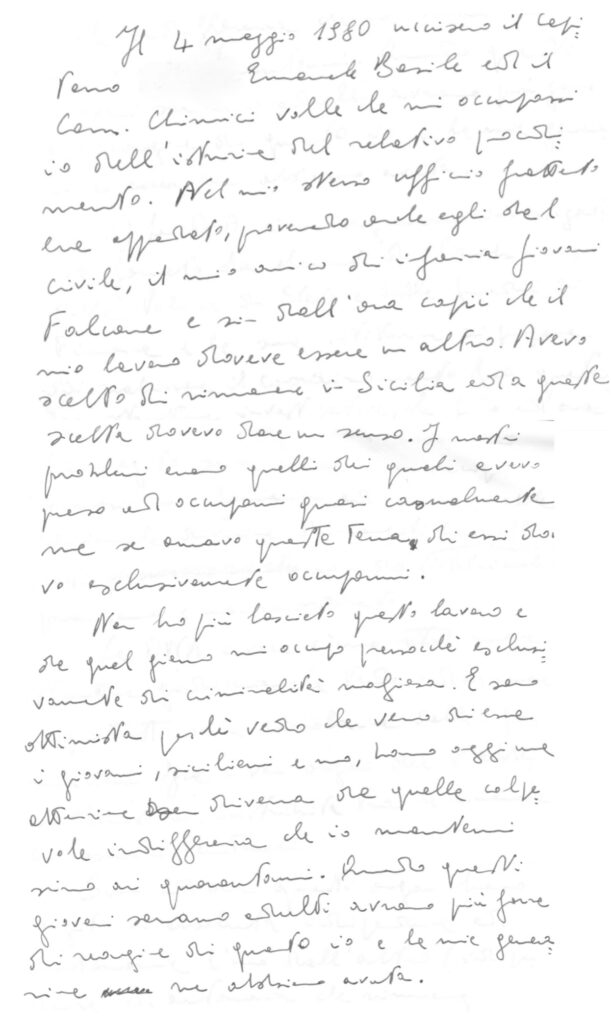 Il 4 maggio 1980 uccisero il Capi-
tano Emanuele Basile ed il
Cons. Chinnici volle che mi occupassi
io dell'istruzione del relativo procedi-
mento. Nel mio stesso ufficio frattanto
era approdato, provenendo anche egli dal
civile, il mio amico di infanzia Giovanni
Falcone e sin dall'ora capii che il
mio lavoro doveva essere un altro. Avevo
scelto di rimanere in Sicilia ed a questa
scelta dovevo dare un senso. I nostri
problemi erano quelli dei quali avevo
preso ad occuparmi quasi casualmente
ma se amavo questa terra, di essi do-
vevo esclusivamente occuparmi.
Non ho più lasciato questo lavoro e
da quel giorno mi occupo pressocchè esclusi-
vamente di criminalità mafiosa. E sono
ottimista perchè vedo che verso di essa
i giovani, siciliani e no, hanno oggi una
attenzione diversa da quella colpe-
vole indifferenza che io mantenni
sino ai quarantanni. Quando questi
giovani saranno adulti avranno più forza
di reagire di quanto io e la mia genera-
zione ne abbiamo avuta.